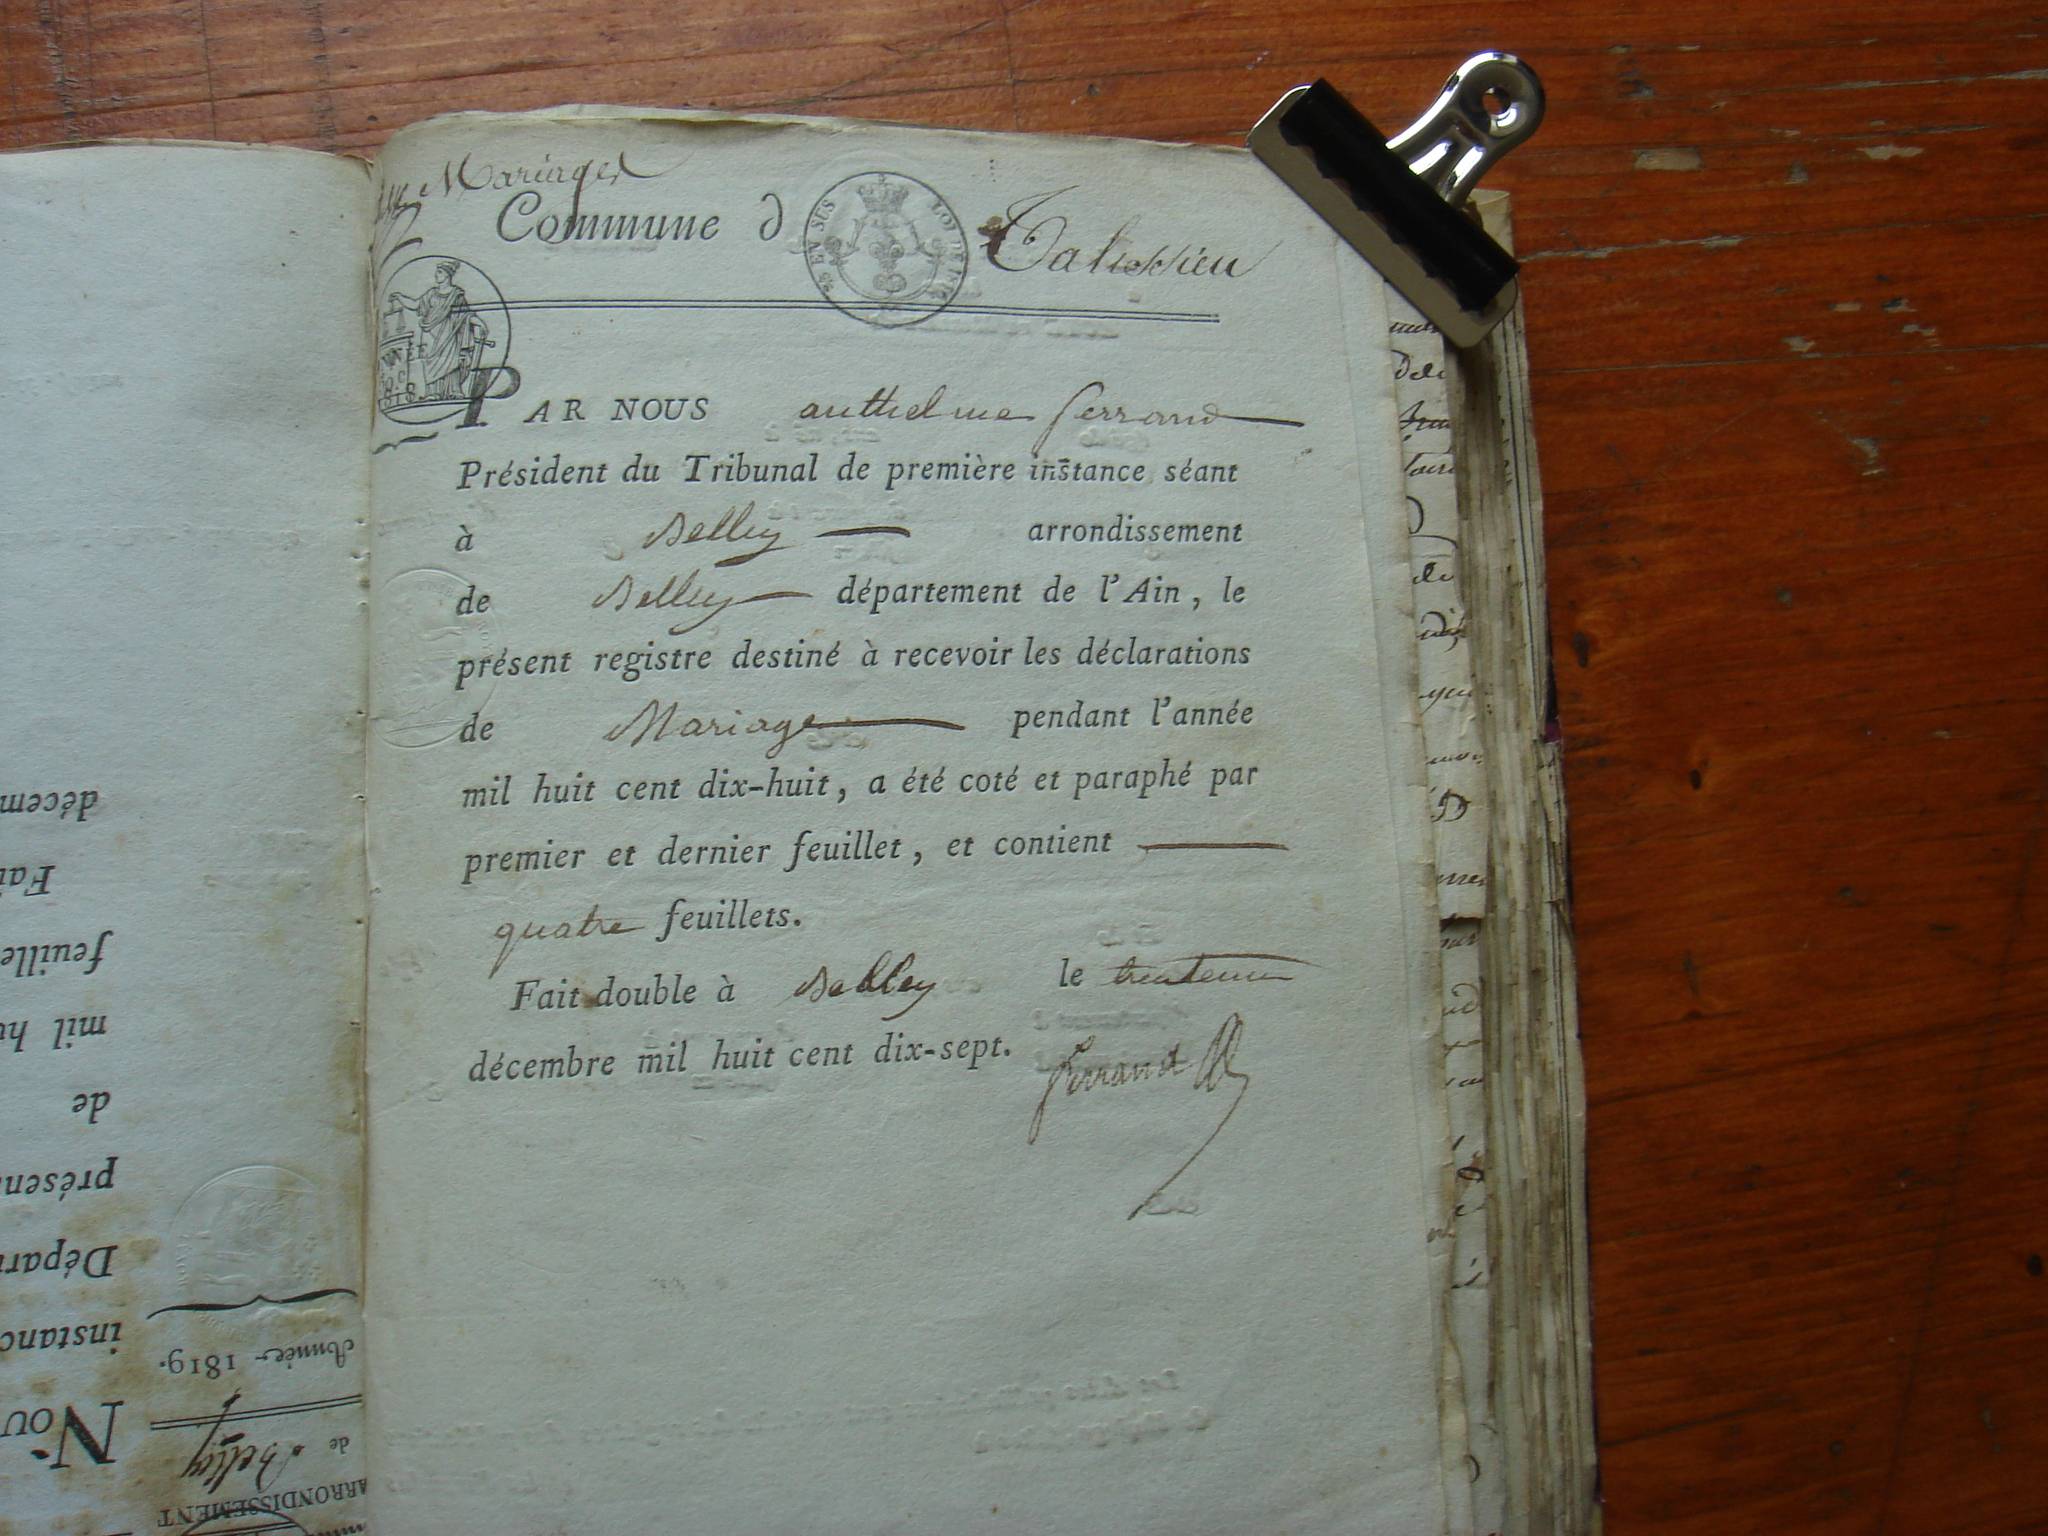 Mariages
Commune d Talissieu
EN SUS
LOI DE 1816
ANNÉE
1818
PAR NOUS anthelme ferrand
Président du Tribunal de première instance séant
à Belley arrondissement
de Belley département de l'Ain, le
présent registre destiné à recevoir les déclarations
de Mariage pendant l'année
mil huit cent dix-huit, a été coté et paraphé par
premier et dernier feuillet, et contient
quatre feuillets.
Fait double à Belley le trenteun
décembre mil huit cent dix-sept.
ferrand
ARRONDISSEMENT
de Belley
Année 1819.
Nou
instanc
Départ
présen
de
mil hu
feuille
Fai
décem